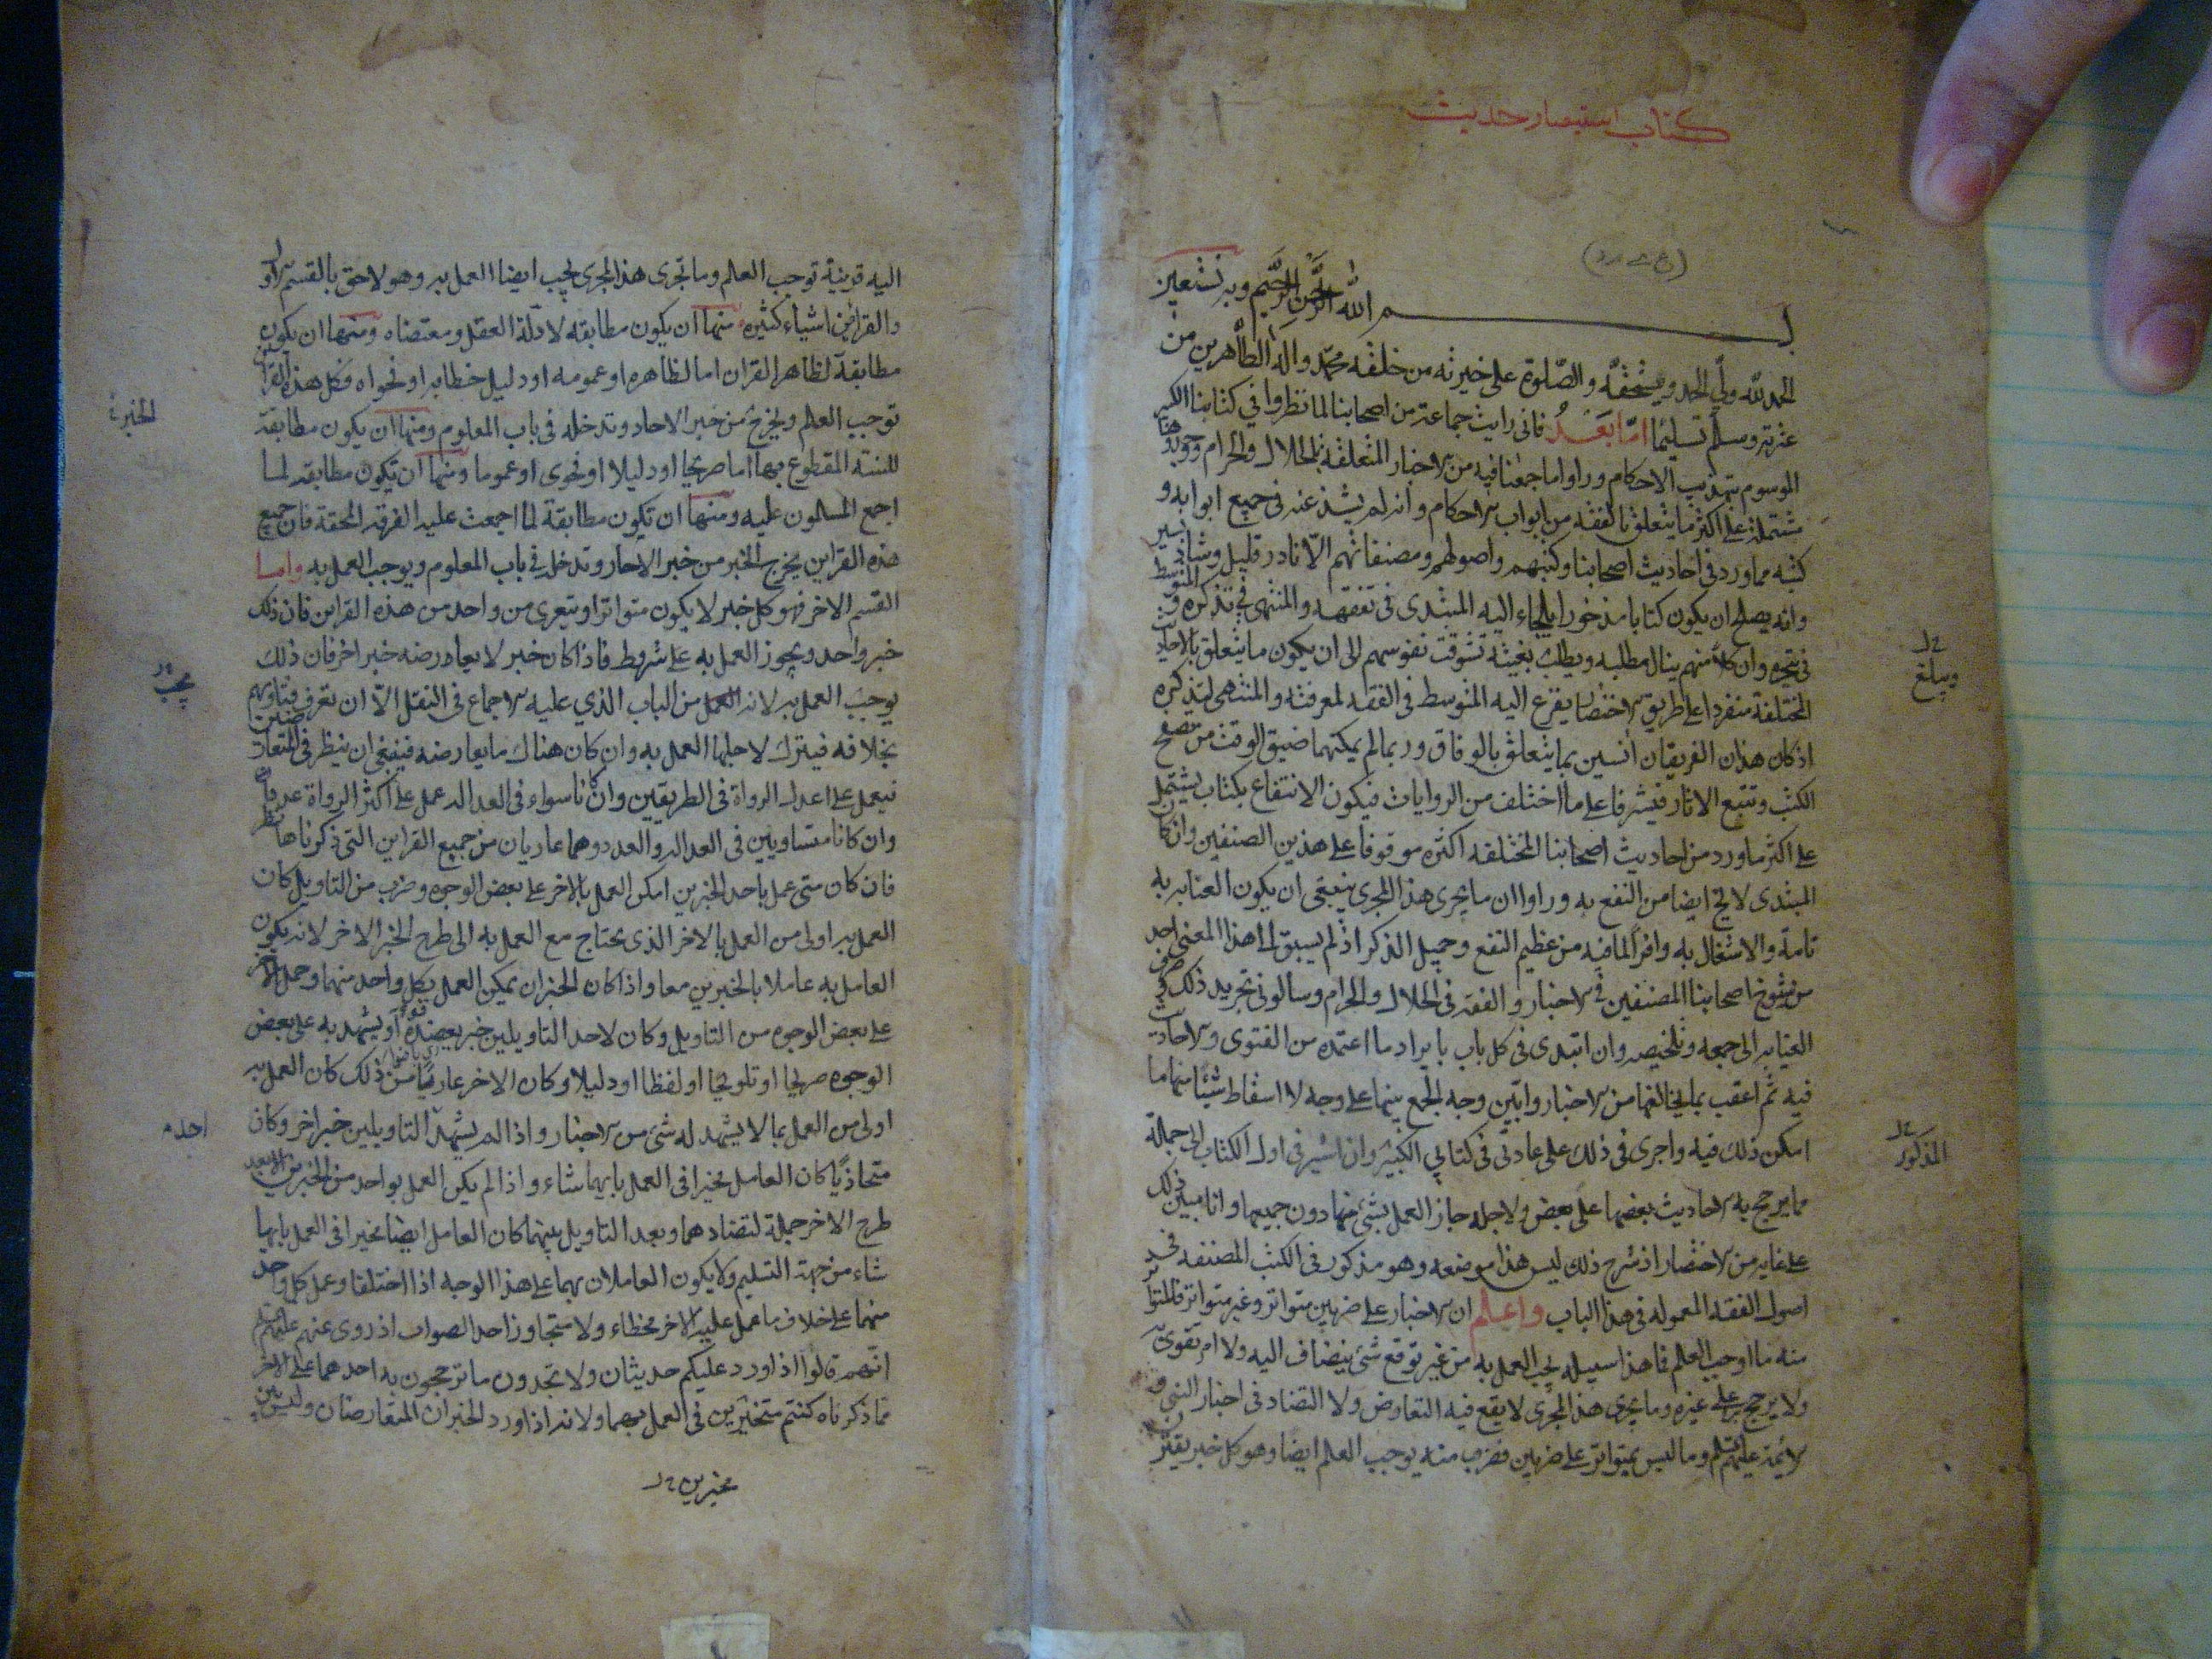 كتاب استبصار حديث
بسم الله الرحمن الرحيم وبه نستعين
الحمد لله ولي الحمد ومستحقه والصلوة على خيرته من خلقه محمد واله الطاهرين من
عترته وسلم تسليما اما بعد فانى رايت جماعة من اصحابنا لما نظروا في كتابنا الكبير
الموسوم بتهذيب الاحكام وراوا ما جمعنا فيه من الاخبار المتعلقة بالحلال والحرام ووجدوها
مشتملة على اكثر ما يتعلق بالفقه من ابواب الاحكام وانه لم يشذ عنه فى جميع ابوابه و
كتبه مما ورد فى احاديث اصحابنا وكتبهم واصولهم ومصنفاتهم الا نادر قليل وشاذ يسير
وانه يصلح ان يكون كتابا مذخورا يلجاء اليه المبتدى فى تفقهه والمنتهى فى تذكره والمتوسط
فى تبحره وان كلا منهم ينال مطلبه ويطلب بغيته تشوقت نفوسهم الى ان يكون ما يتعلق بالاحاديث
المختلفة منفردا على طريق الاختصار يفزع اليه المتوسط فى الفقه لمعرفته والمنتهى لتذكره
اذ كان هذان الفريقان انسين بما يتعلق بالوفاق وربما لم يمكنهما ضيق الوقت من تصفح
الكتب وتتبع الاثار فيشرفا على ما اختلف من الروايات فيكون الانتفاع بكتاب يشتمل
على اكثر ما ورد من احاديث اصحابنا المختلفه اكثره موقوفا على هذين الصنفين وان كان
المبتدى لا يخ ايضا من النفع به وراوا ان ما يجرى هذا المجرى ينبغى ان يكون العناية به
تامة والاشتغال به وافرا لما فيه من عظيم النفع وجميل الذكر اذ لم يسبق الى هذا المعنى احد
من شيوخ اصحابنا المصنفين فى الاخبار والفقه فى الحلال والحرام وسألونى تجريد ذلك وصرف
العناية الى جمعه وتلخيصه وان ابتدى فى كل باب بايراد ما اعتمده من الفتوى والاحاديث
فيه ثم اعقب بما يخالفها من الاخبار وابين وجه الجمع بينها على وجه لا اسقاط شيئا منها ما
امكن ذلك فيه واجرى فى ذلك على عادتى فى كتابي الكبير وان اشير فى اول الكتاب الى جملة
مما يرجح به الاحاديث بعضها على بعض ولاجله جاز العمل بشئ منها دون جميعها وانا مبين ذلك
على غاية من الاختصار اذ شرح ذلك ليس هذا موضعه وهو مذكور فى الكتب المصنفه فى
اصول الفقه المعموله فى هذا الباب واعلم ان الاخبار على ضربين متواتر وغير متواتر فالمتواتر
منه ما اوجب العلم فما هذا سبيله يجب العمل به من غير توقع شئ ينضاف اليه ولا امر يقوى به
ولا يرجح به على غيره وما يجرى هذا المجرى لا يقع فيه التعارض ولا التضاد فى اخبار النبى و
الائمة عليهم السلم وما ليس بمتواتر على ضربين فضرب منه يوجب العلم ايضا وهو كل خبر يقترن
ويبلغ
المذكور
اليه قرينة توجب العلم وما تجرى هذا المجرى يجب ايضا العمل به وهو لاحق بالقسم الاول
والقراين اشياء كثيره منها ان يكون مطابقه لادلة العقل ومقتضاه ومنها ان يكون
مطابقة لظاهر القران اما لظاهره او عمومه او دليل خطابه او فحواه فكل هذه القراين
توجب العلم ويخرج من خبر الاحاد وتدخله فى باب المعلوم ومنها ان يكون مطابقة
للسنة المقطوع بها اما صريحا او دليلا او فحوى او عموما ومنها ان يكون مطابقه لما
اجمع المسلمون عليه ومنها ان تكون مطابقة لما اجمعت عليه الفرقه المحقة فان جميع
هذه القراين يخرج الخبر من خبر الاحاد وتدخل فى باب المعلوم ويوجب العمل به واما
القسم الاخر فهو كل خبر لا يكون متواترا ويتعرى من واحد من هذه القراين فان ذلك
خبر واحد ويجوز العمل به على شروط فاذا كان خبر لا يعارضه خبر اخر فان ذلك
يوجب العمل به لانه العمل من الباب الذي عليه الاجماع فى النقل الا ان تعرف فتاويهم
بخلافه فيترك لاجلها العمل به وان كان هناك ما يعارضه فينبغى ان ينظر فى المتعارضين
فيعمل على اعدل الرواة فى الطريقين وان كانا سواء فى العداله عمل على اكثر الرواة عددا
وان كانا متساويين فى العداله والعدد وهما عاريان من جميع القراين التى ذكرناها نظر
فان كان متى عمل باحد الخبرين امكن العمل بالاخر على بعض الوجوه وضرب من التاويل كان
العمل به اولى من العمل بالاخر الذى يحتاج مع العمل به الى طرح الخبر الاخر لانه يكون
العامل به عاملا بالخبرين معا واذا كان الخبران يمكن العمل بكل واحد منهما وحمل الاخر
على بعض الوجوه من التاويل وكان لاحد التاويلين خبر يعضده او يشهد به على بعض
الوجوه صريحا او تلويحا او لفظا او دليلا وكان الاخر عاريا من ذلك كان العمل به
اولى من العمل بما لا يشهد له شئ من الاخبار واذا لم يشهد التاويلين خبر اخر وكان
متحاذيا كان العامل مخيرا فى العمل بايهما شاء واذا لم يكن العمل بواحد من الخبرين الا بعد
طرح الاخر جملة لتضادهما وبعد التاويل بينهما كان العامل ايضا مخيرا فى العمل بايهما
شاء من جهة التسليم ولا يكون العاملان بهما على هذا الوجه اذا اختلفا وعمل كل واحد
منهما على خلاف ما عمل عليه الاخر مخطاء ولا متجاوزا حد الصواب اذ روى عنهم عليهم السلم
انهم قالوا اذا ورد عليكم حديثان ولا تجدون ما ترجحون به احدهما على الاخر
مما ذكرناه كنتم متخيرين فى العمل بهما ولانه اذا ورد الخبران المتعارضان وليس بين
مخيرين
الخبر
يجب
احد